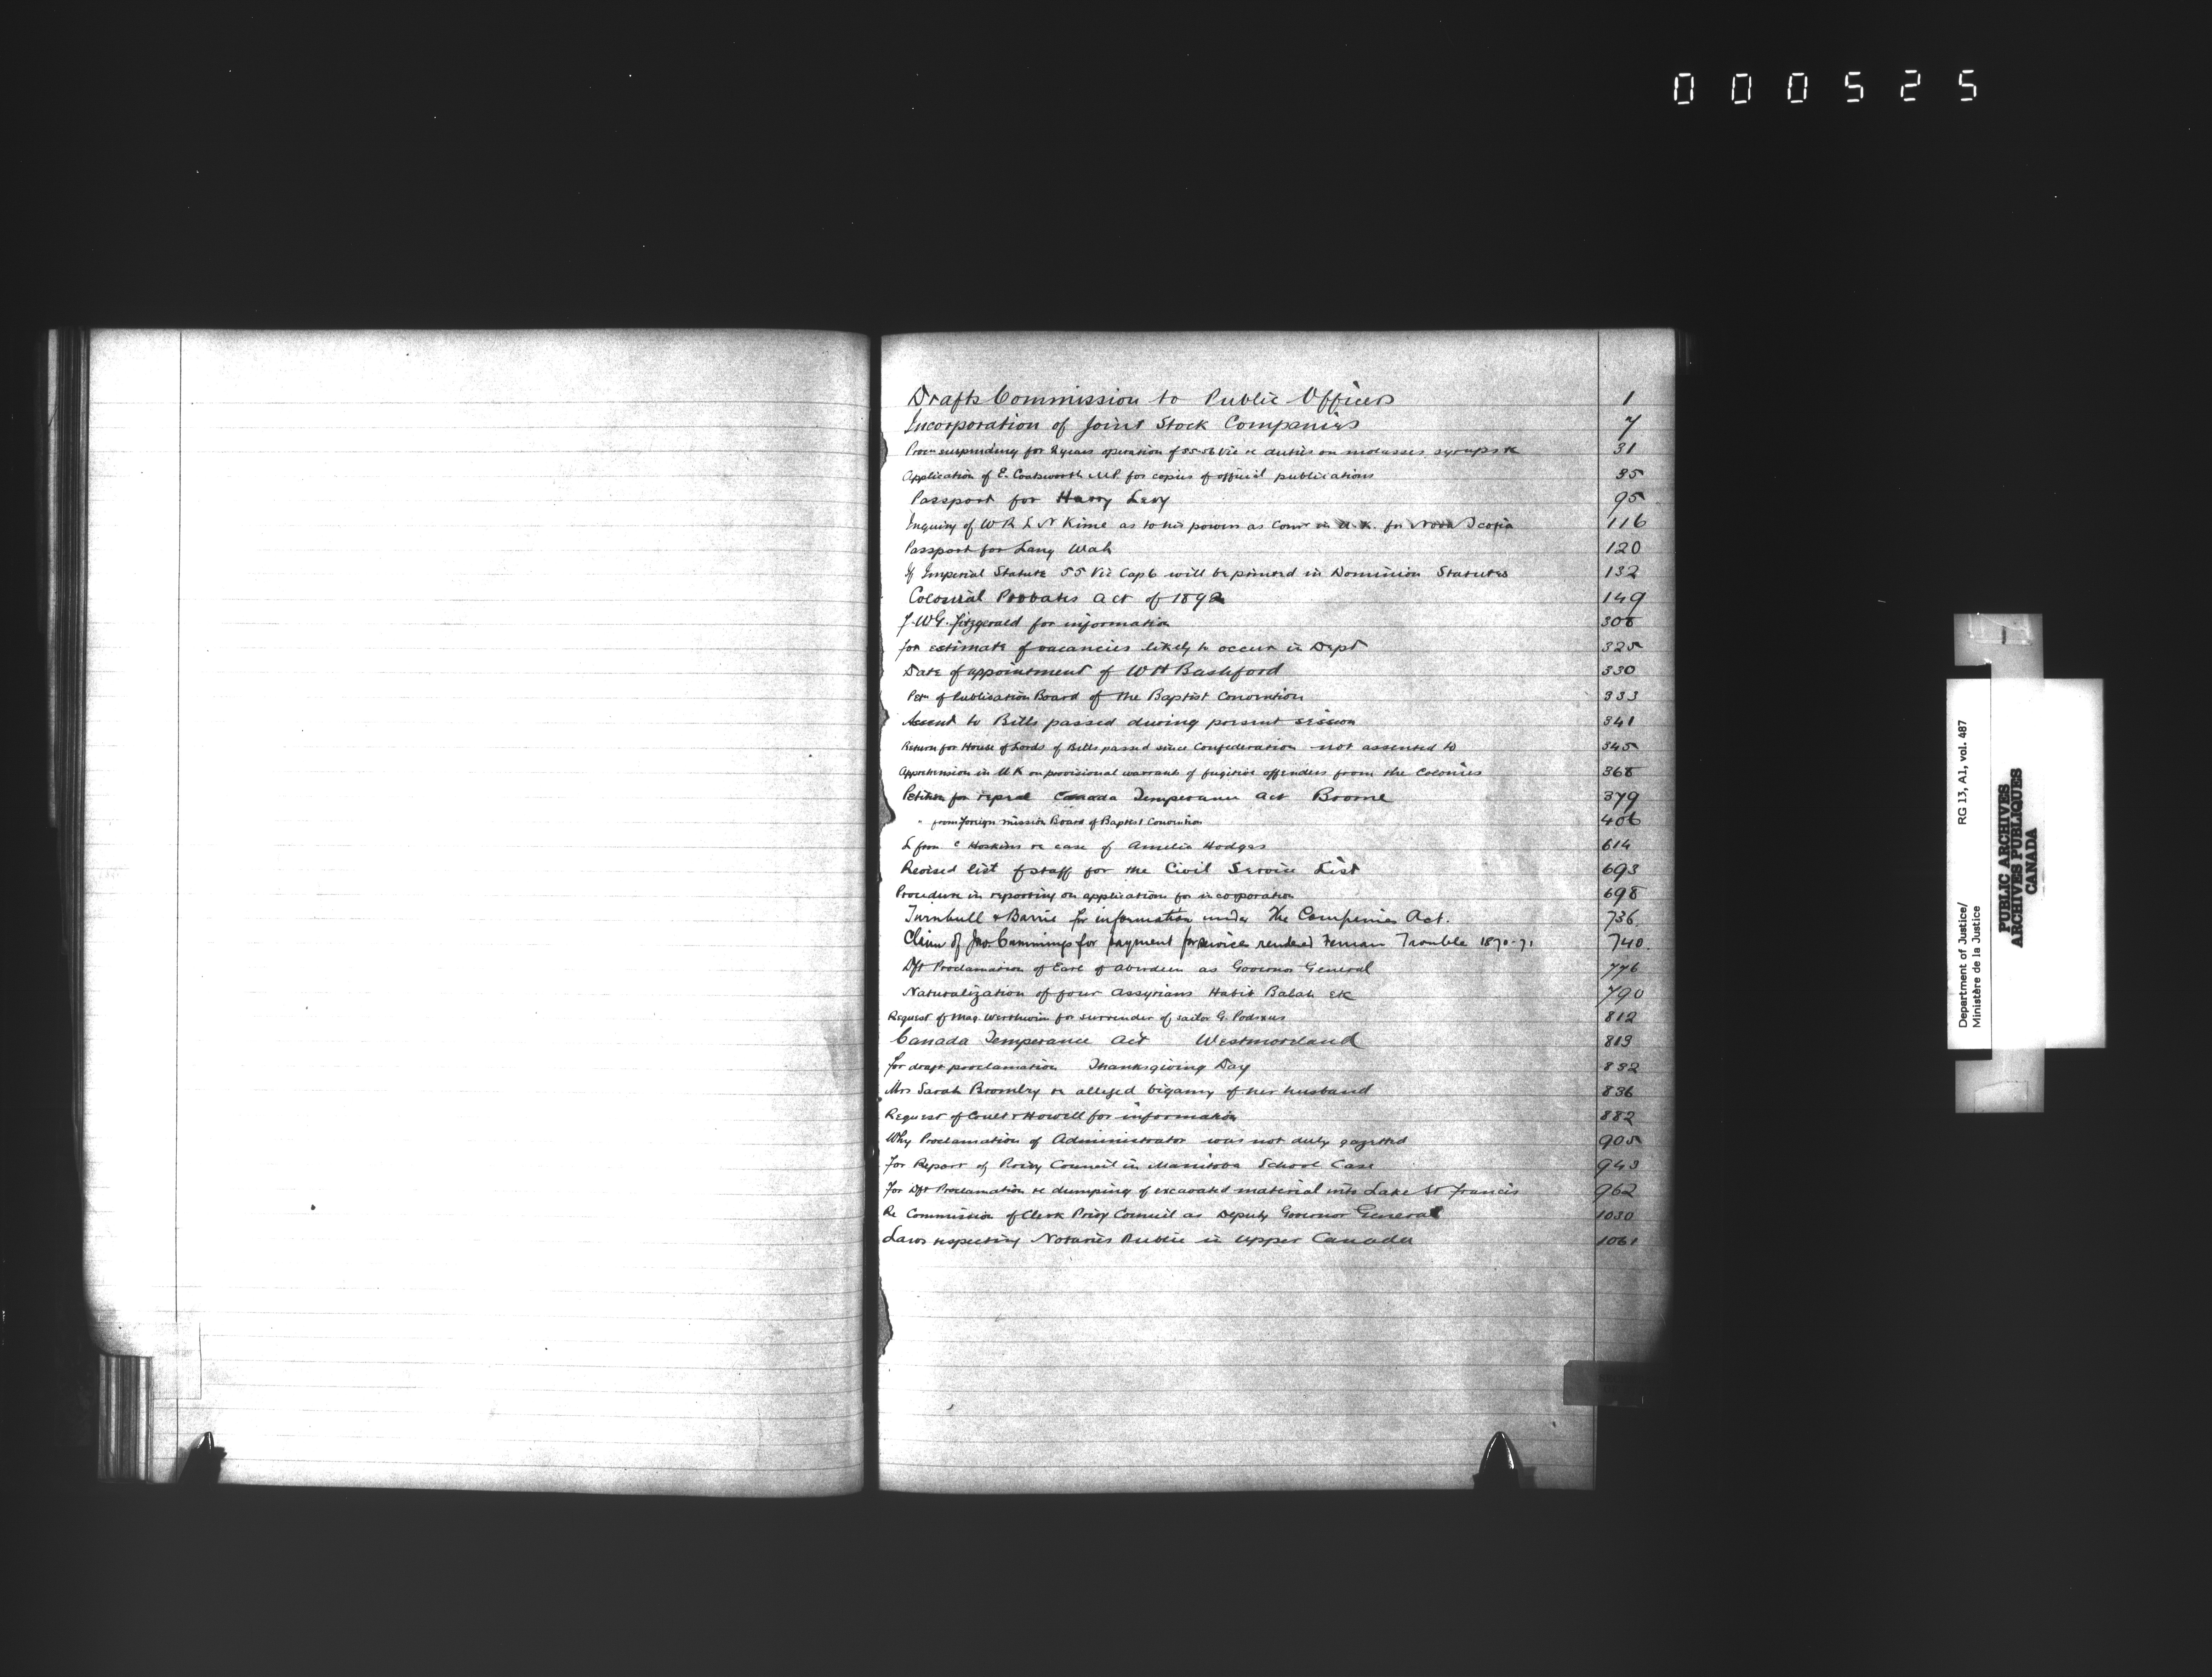 000525
Drafts Commission to Public Officers 1
Incorporation of Joint Stock Companies 7
Procn suspending for 2 years operation of 55-56 Vic re duties on molasses, syrups &c 31
Application of E. Coatsworth M.P. for copies of official publications 35
Passport for Harry Levy 95
Inquiry of W R L N Kime as to his powers as Comr in U.K. for Nova Scotia 116
Passport for Lang Wah 120
If Imperial Statute 55 Vic Cap 6 will be printed in Dominion Statutes 132
Colonial Probates Act of 1892 149
J. W G. Fitzgerald for information 308
for estimate of vacancies likely to occur in Dept 325
Date of appointment of W H Bashford 330
Petn of Publication Board of the Baptist Convention 333
Assent to Bills passed during present session 341
Return for House of Lords of Bills passed since Confederation not assented to 345
Apprehension in U K on provisional warrants of fugitive offenders from the Colonies 368
Petition for repeal Canada Temperance Act Brome 379
" from Foreign Mission Board of Baptist Convention 406
L from C Hoskins re case of Amelia Hodges 614
Revised list of staff for the Civil Service List 693
Procedure in reporting on application for incorporation 698
Turnbull & Barrie for information under The Companies Act. 736
Claim of Jno. Cummings for payment for service rendered Fenian Trouble 1870-71 740.
Dft Proclamation of Earl of Aberdeen as Governor General 776
Naturalization of four Assyrians Habib Balah etc 790
Request of Mag. for surrender of sailor G. 812
Canada Temperance Act Westmoreland 819
for draft proclamation Thanksgiving Day 832
Mrs Sarah Bromley re alleged bigamy of her husband 836
Request of Coult & Howell for information 882
Why Proclamation of Administrator was not duly gazetted 905
For Report of Privy Council in Manitoba School Case 943
For Dft Proclamation re dumping of excavated material into Lake St Francis 962
Re Commission of Clerk Privy Council as Deputy Governor General 1030
Laws respecting Notaries Public in Upper Canada 1061
Department of Justice/ RG 13, A1, vol. 487
Ministère de la Justice
PUBLIC ARCHIVES
ARCHIVES PUBLIQUES
CANADA